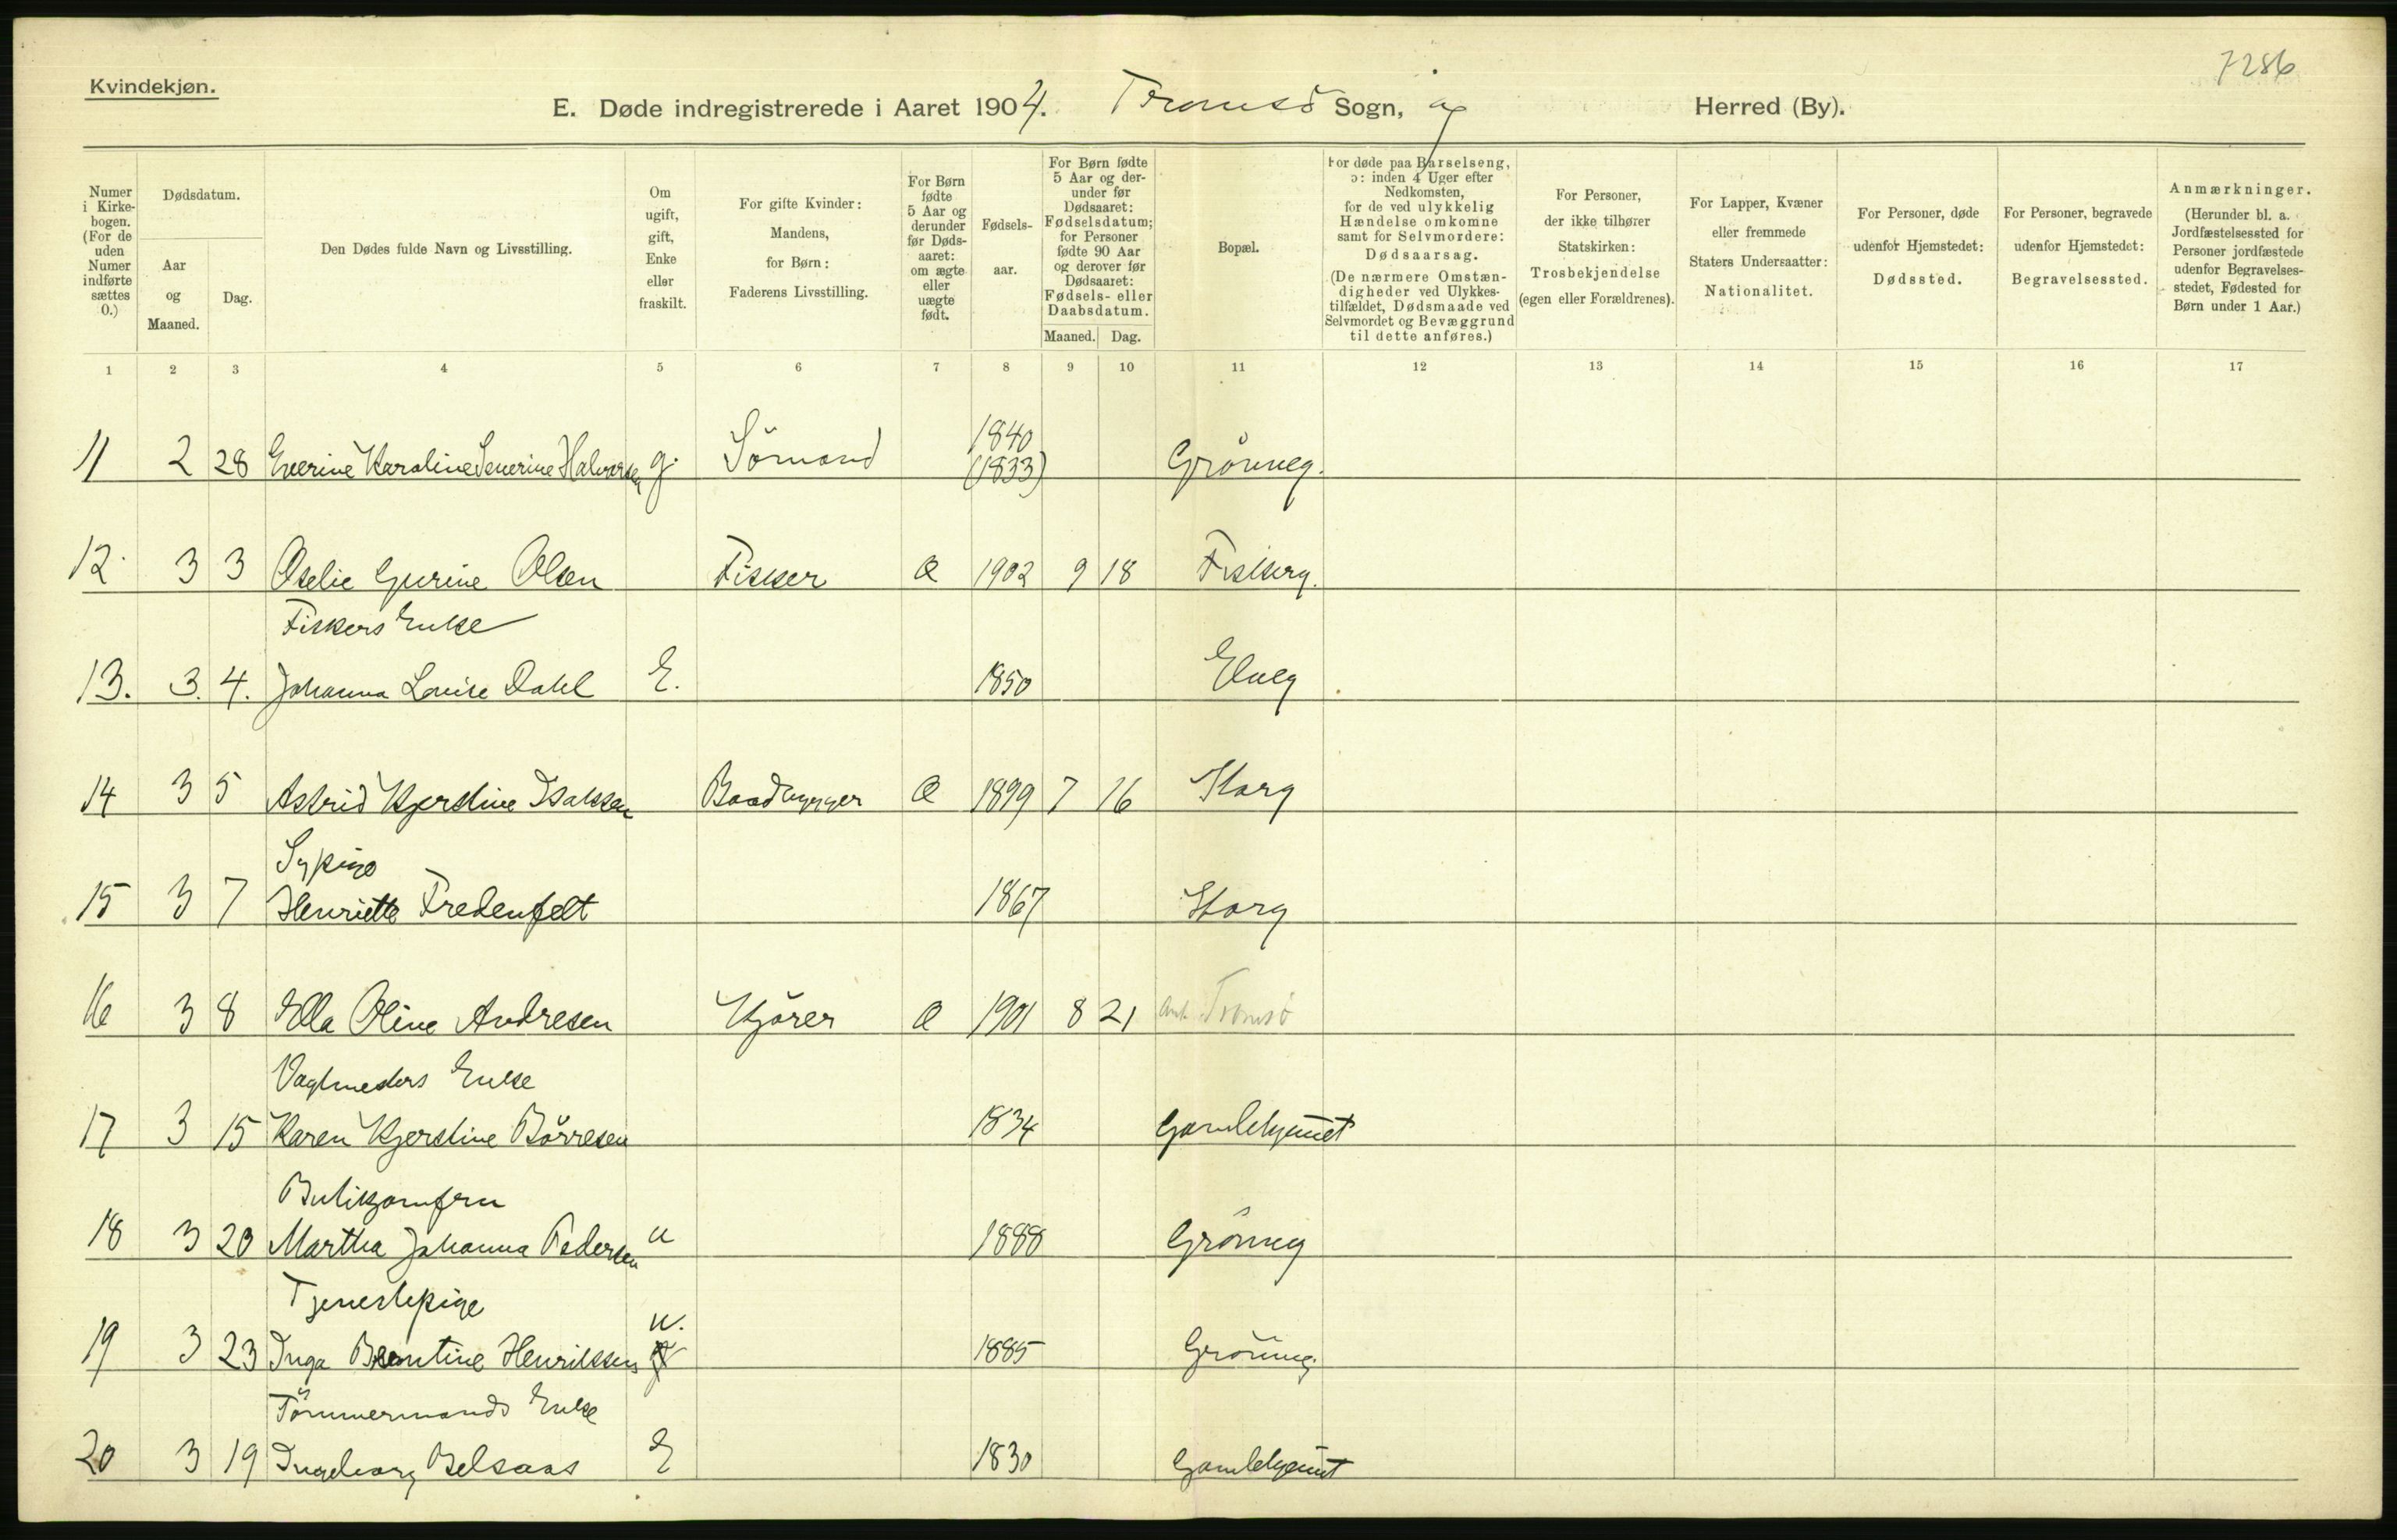 7286
Kvindekjøn.
E. Døde indregistrerede i Aaret 1904. Tromsö Sogn, og Herred (By).
Numer i Kirkebogen. (For de uden Numer indførte sættes 0.)
Dødsdatum.
Aar og Maaned.
Dag.
Den Dødes fulde Navn og Livsstilling.
Om ugift, gift, Enke eller fraskilt.
For gifte Kvinder: Mandens, for Børn: Faderens Livsstilling.
For Børn fødte 5 Aar og derunder før Dødsaaret: om ægte eller uægte født.
Fødselsaar.
For Børn fødte 5 Aar og derunder før Dødsaaret: Fødselsdatum; for Personer fødte 90 Aar og derover før Dødsaaret: Fødsels- eller Daabsdatum.
Maaned. Dag.
Bopæl.
For døde paa Barselseng, ɔ: inden 4 Uger efter Nedkomsten, for de ved ulykkelig Hændelse omkomne samt for Selvmordere: Dødsaarsag. (De nærmere Omstændigheder ved Ulykkestilfældet, Dødsmaade ved Selvmordet og Bevæggrund til dette anføres.)
For Personer, der ikke tilhører Statskirken: Trosbekjendelse (egen eller Forældrenes).
For Lapper, Kvæner eller fremmede Staters Undersaatter: Nationalitet.
For Personer, døde udenfor Hjemstedet: Dødssted.
For Personer, begravede udenfor Hjemstedet: Begravelsessted.
Anmærkninger. (Herunder bl. a. Jordfæstelsessted for Personer jordfæstede udenfor Begravelsesstedet, Fødested for Børn under 1 Aar.)
1 2 3 4 5 6 7 8 9 10 11 12 13 14 15 16 17
1840
11 2 28 Everine Karoline Severine Halvorsen g. Sömand (1833) Grönneg.
12 3 3 Oselie Gurine Olsen Fisker Æ 1902 9 18 Fiskerg.
Fiskers Enke
13. 3. 4. Johanna Louise Dahl E. 1850 Elveg
14 3 5 Astrid Kjerstine Isaksen Baadbygger Æ 1899 7 16 Storg
Sypige
15 3 7 Henriette Fredenfelt 1867 Storg
16 3 8 Ella Oline Andresen Kjörer Æ 1901 8 21 Tromsö
Vagtmesters Enke
17 3 15 Karen Kjerstine Börresen 1834 Gamlehjemmet
Butikjomfru
18 3 20 Martha Johanna Pedersen u 1888 Grönneg
Tjenestepige
19 3 23 Inga Berntine Henriksen u. 1885 Grönneg.
Tömmermands Enke
20 3 19 Ingeborg Belsaas E 1830 Gamlehjemmet